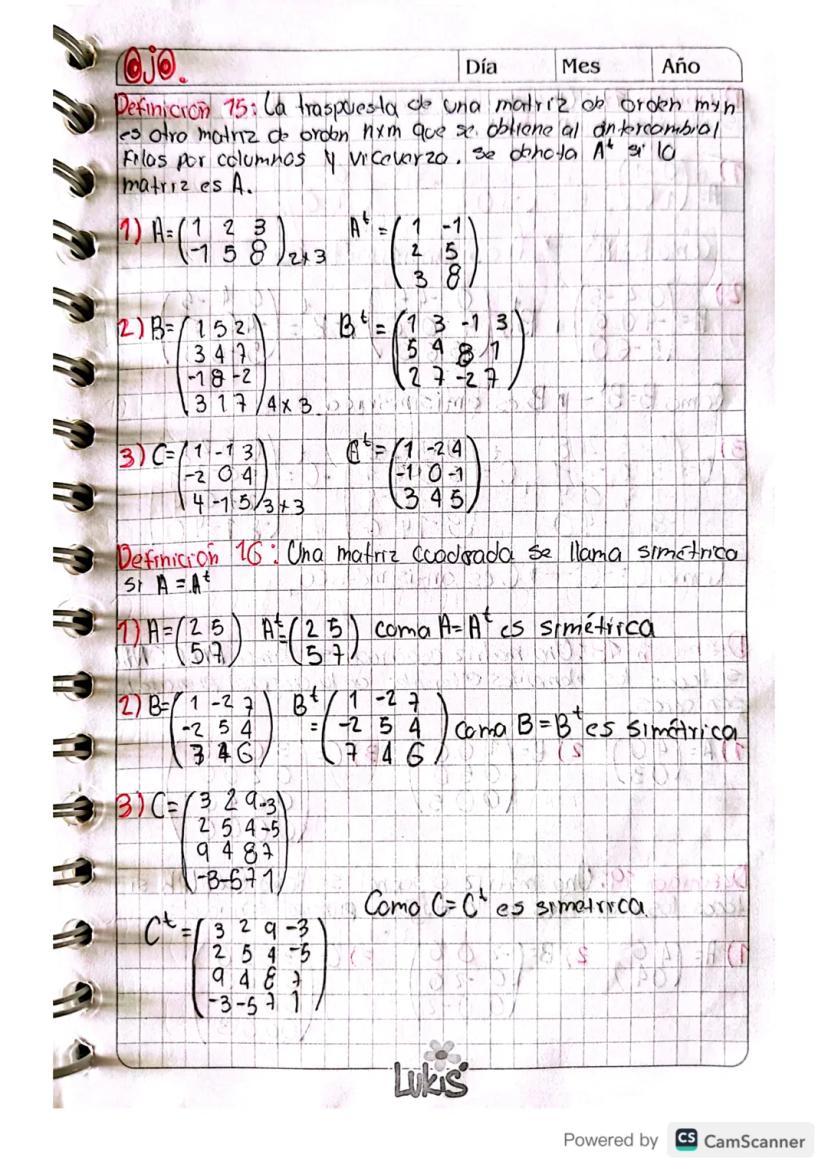 Ojo.
Día Mes Año
Definición 15: La traspuesta de una matriz de orden mxn
es otro matriz de orden nxm que se obtiene al intercambial
Filas por columnas y viceverza. se denota A^t si la
matriz es A.
1) A= ( 1 2 3 A^t = ( 1 -1
-1 5 8 ) 2x3 2 5
3 8 )
2) B= ( 1 5 2 B^t = ( 1 3 -1 3
3 4 7 5 4 8 1
-1 8 -2 2 7 -2 7 )
3 1 7 ) 4x3
3) C= ( 1 -1 3 C^t = ( 1 -2 4
-2 0 4 -1 0 -1
4 -1 5 ) 3x3 3 4 5 )
Definición 16: Una matriz cuadrada se llama simétrica
si A = A^t
1) A= ( 2 5 A^t = ( 2 5 como A=A^t es simétrica
5 7 ) 5 7 )
2) B= ( 1 -2 7 B^t = ( 1 -2 7
-2 5 4 -2 5 4 como B=B^t es simétrica
3 4 6 ) 7 4 6 )
3) C= ( 3 2 9 -3
2 5 4 -5
9 4 8 7
-3 -5 7 1 )
Como C=C^t es simetrica
C^t = ( 3 2 9 -3
2 5 4 -5
9 4 8 7
-3 -5 7 1 )
Lukis
Powered by CS CamScanner